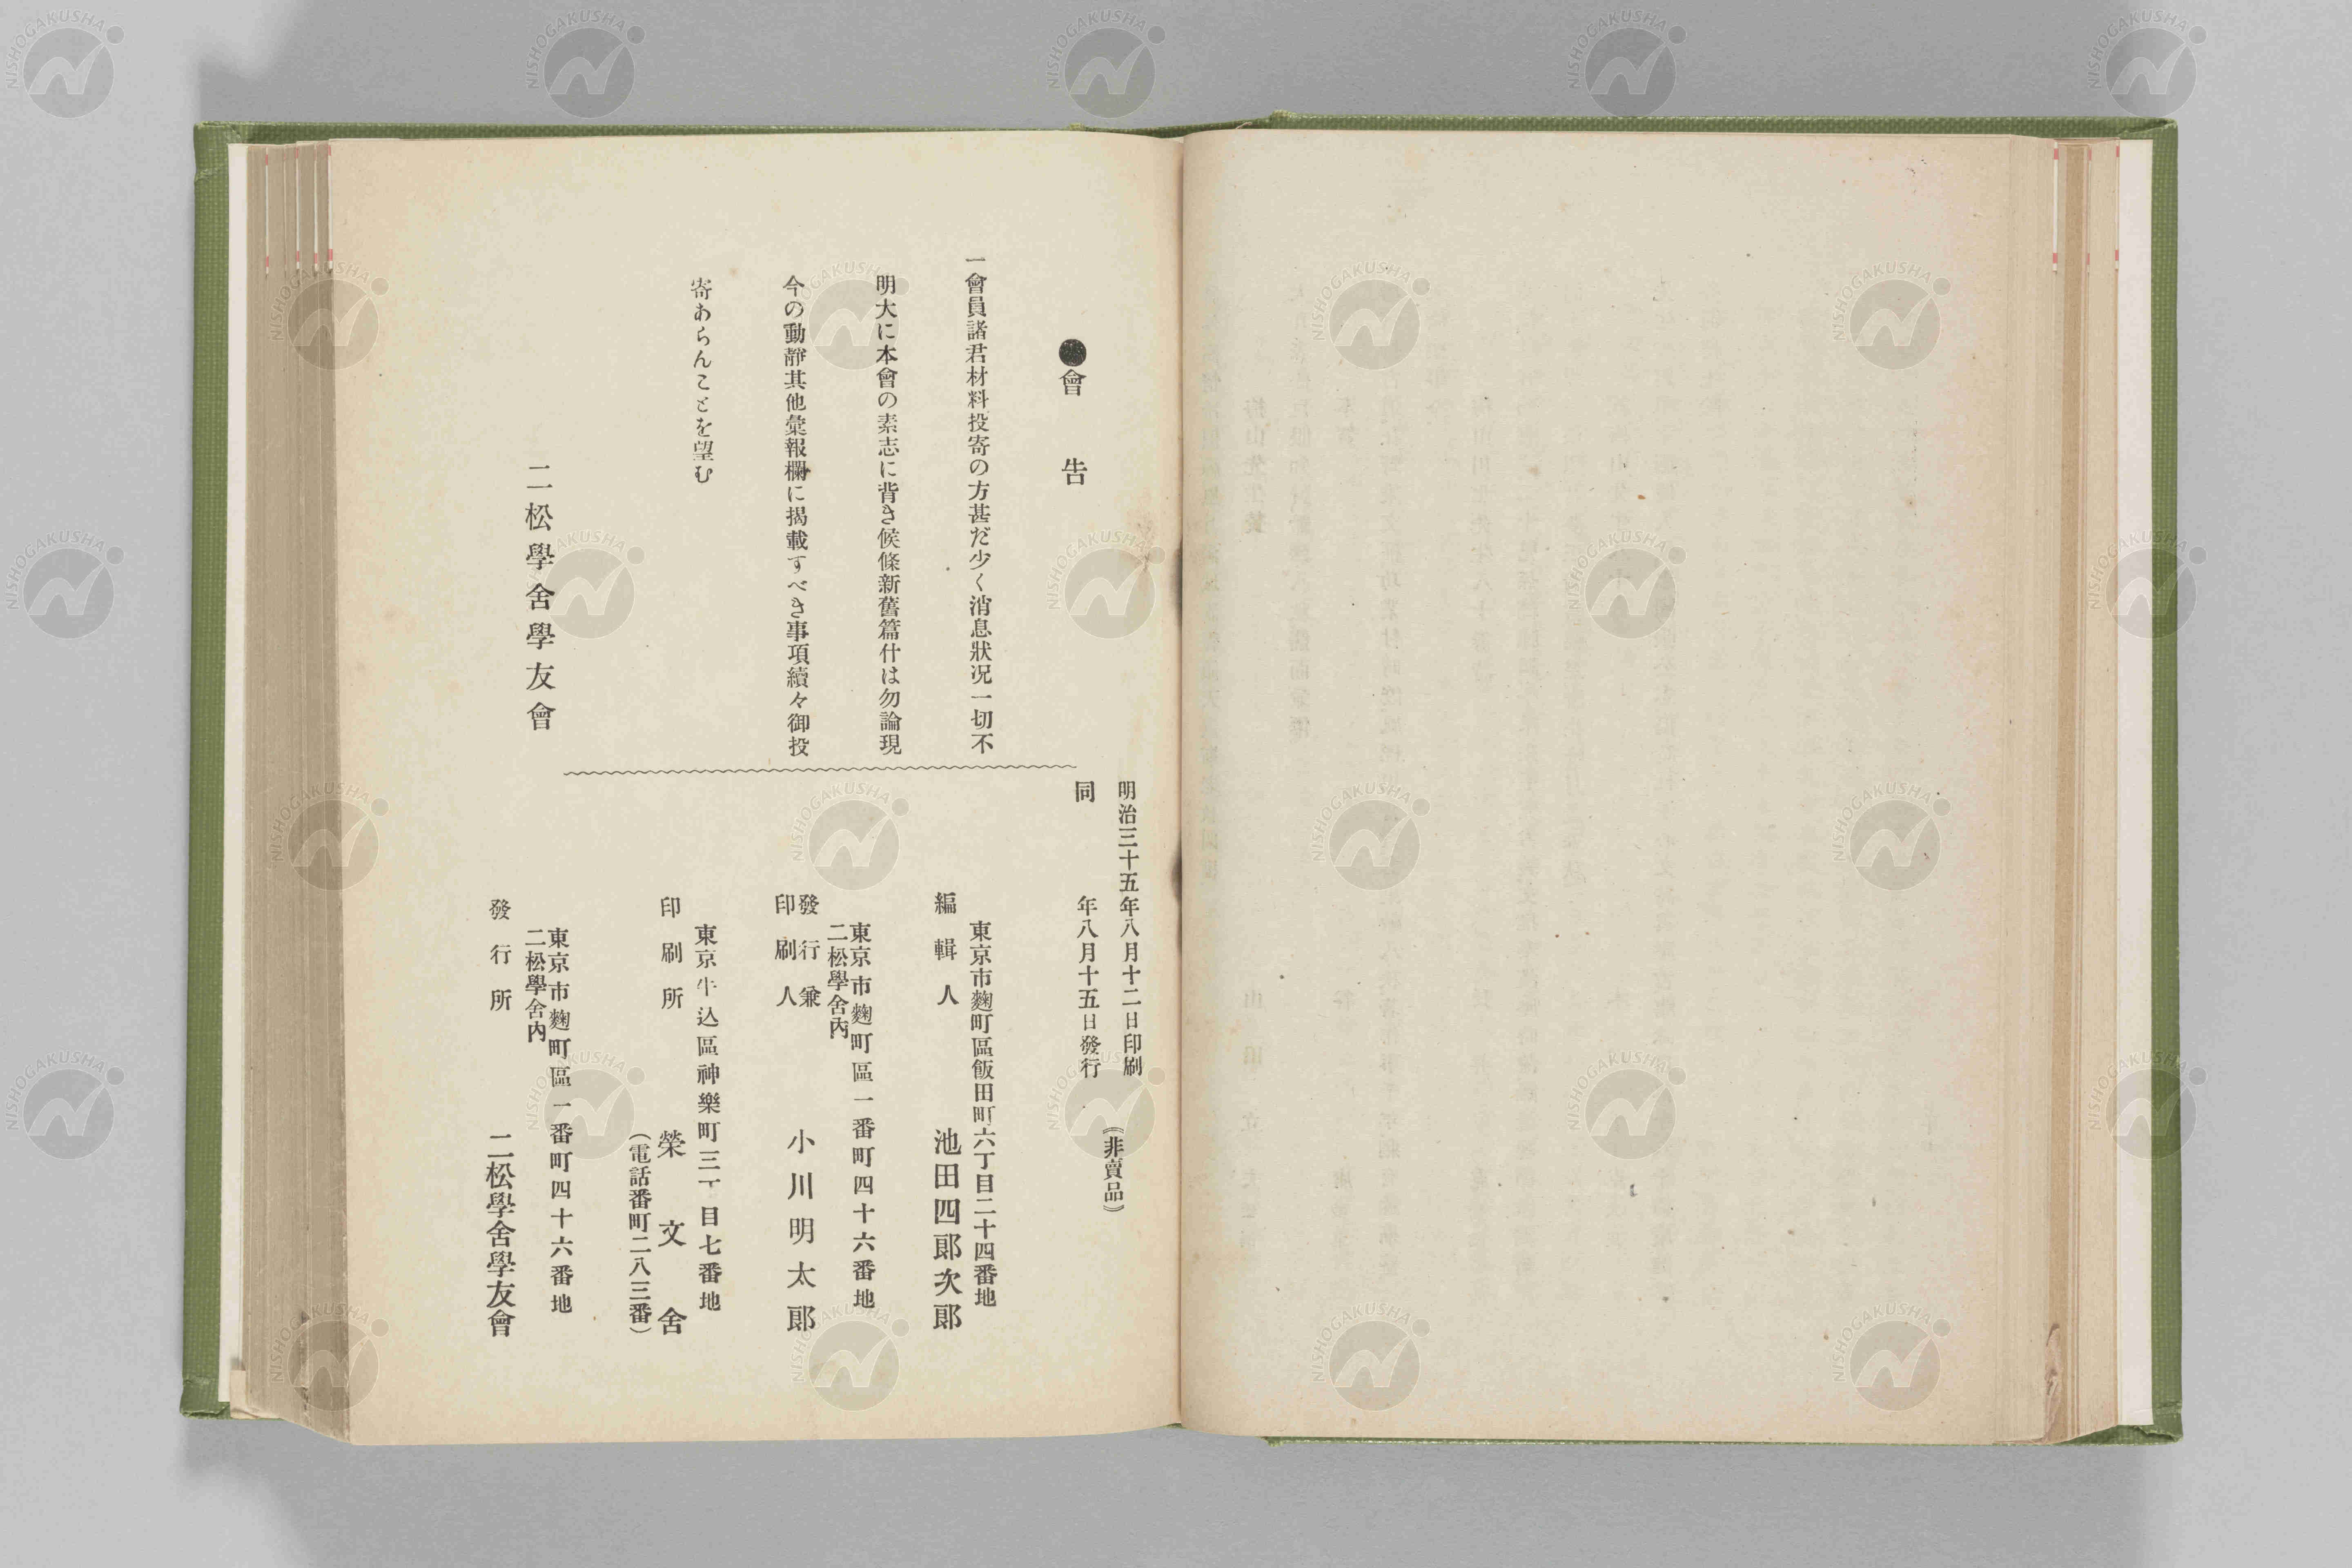 ●會告
一會員諸君材料投寄の方甚だ少く消息狀况一切不
明大に本會の素志に背き候條新舊篇什は勿論現
今の動靜其他彙報欄に揭載すべき事項續々御投
寄あらんことを望む
二松學舍學友會
明治三十五年八月十二日印刷
同年八月十五日發行
(非賣品)
東京市麴町區飯田町六丁目二十四番地
編輯人 池田四郞次郞
東京市麴町區一番町四十六番地
二松學舍內
發行兼
印刷人 小川明太郞
東京牛込區神樂町三丁目七番地
印刷所 榮文舍
(電話番町二八三番)
東京市麴町區一番町四十六番地
二松學舍內
發行所 二松學舍學友會
NISHOGAKUSHA